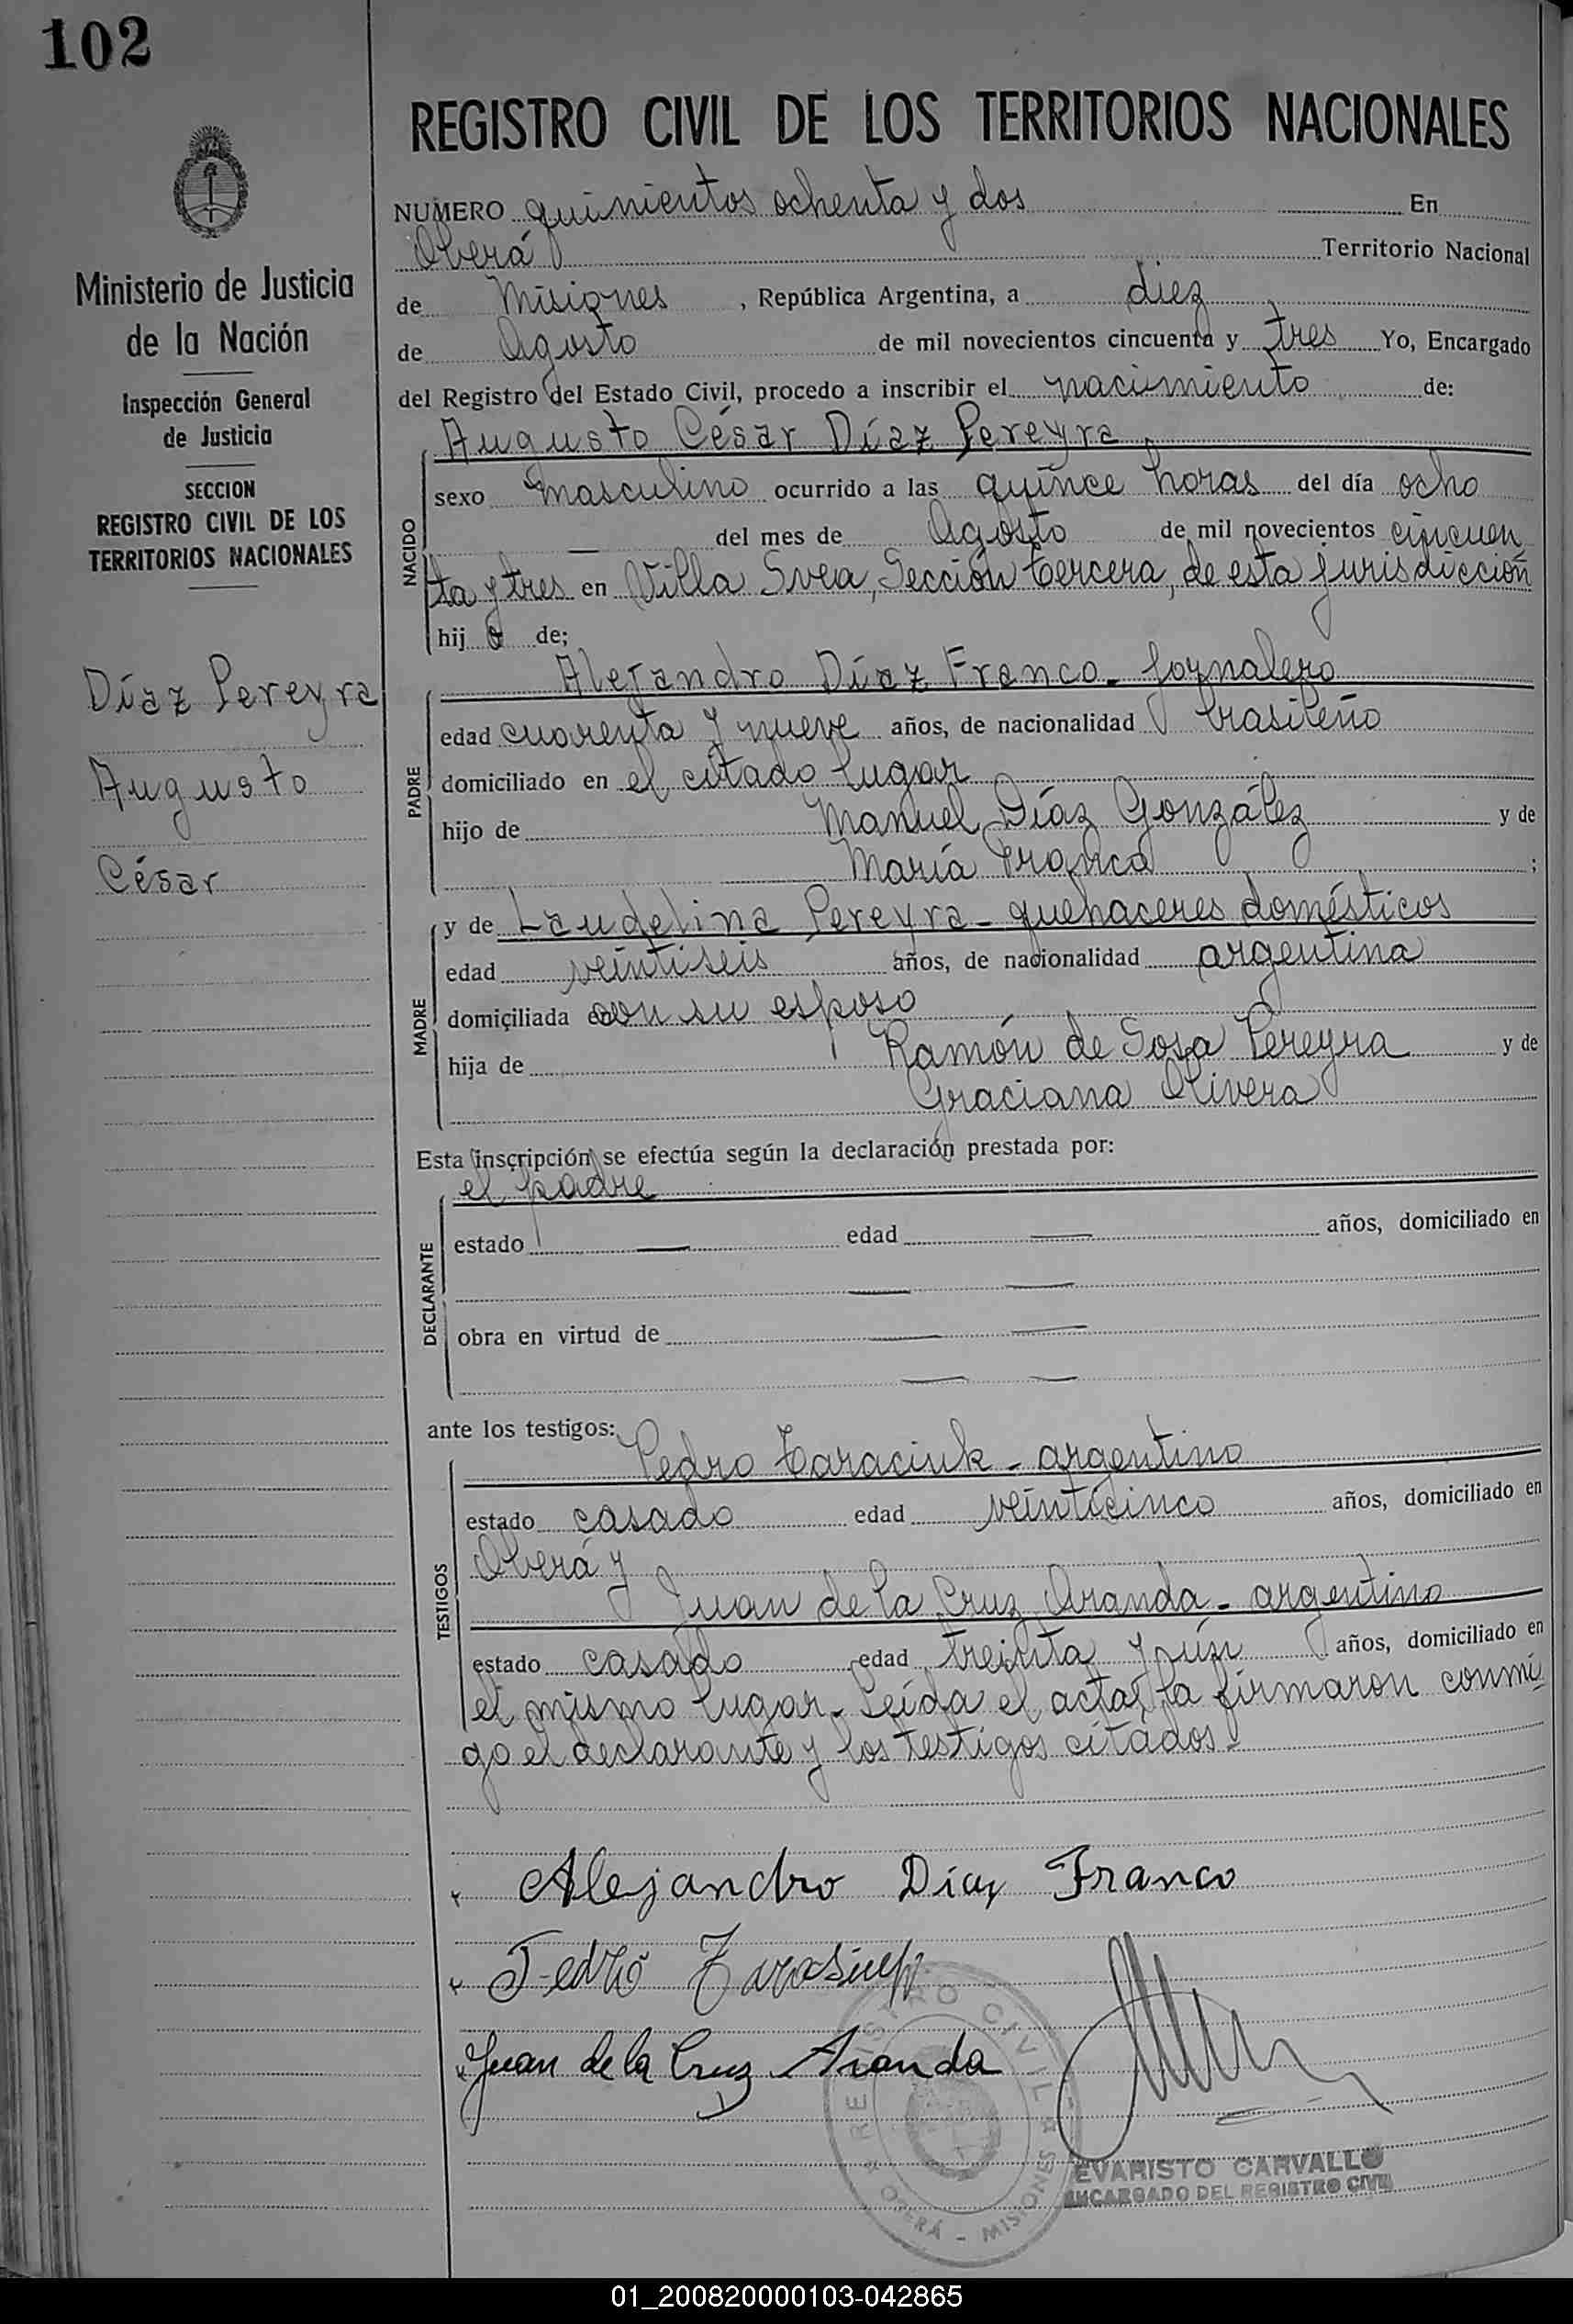 102
REGISTRO CIVIL DE LOS TERRITORIOS NACIONALES
Ministerio de Justicia
de la Nación
Inspección General
de Justicia
SECCION
REGISTRO CIVIL DE LOS
TERRITORIOS NACIONALES
Díaz Pereyra
Augusto
César
NUMERO quinientos ochenta y dos En
Oberá Territorio Nacional
de Misiones , República Argentina, a diez
de Agosto de mil novecientos cincuenta y tres Yo, Encargado
del Registro del Estado Civil, procedo a inscribir el nacimiento de:
NACIDO
Augusto César Díaz Pereyra
sexo masculino ocurrido a las quince horas del día ocho
— del mes de Agosto de mil novecientos cincuen
ta y tres en Villa Svea, Sección tercera, de esta jurisdicción
hij o de;
PADRE
Alejandro Díaz Franco - jornalero
edad cuarenta y nueve años, de nacionalidad brasileño
domiciliado en el citado lugar
hijo de Manuel Díaz González y de
María Franco ;
MADRE
y de Laudelina Pereyra - quehaceres domésticos
edad veintiseis años, de nacionalidad argentina
domiciliada con su esposo
hija de Ramón de Sosa Pereyra y de
Graciana Olivera
Esta inscripción se efectúa según la declaración prestada por:
DECLARANTE
el padre
estado — edad — años, domiciliado en
— —
obra en virtud de — —
— —
ante los testigos:
TESTIGOS
Pedro Taraciuk - argentino
estado casado edad veinticinco años, domiciliado en
Oberá y
Juan de la Cruz Aranda - argentino
estado casado edad treinta y ún años, domiciliado en
el mismo lugar. Leída el acta, la firmaron conmi
go el declarante y los testigos citados.-
Alejandro Díaz Franco
Juan de la Cruz Aranda
REGISTRO CIVIL
OBERÁ - MISIONES
EVARISTO CARVALLO
ENCARGADO DEL REGISTRO CIVIL
01_200820000103-042865